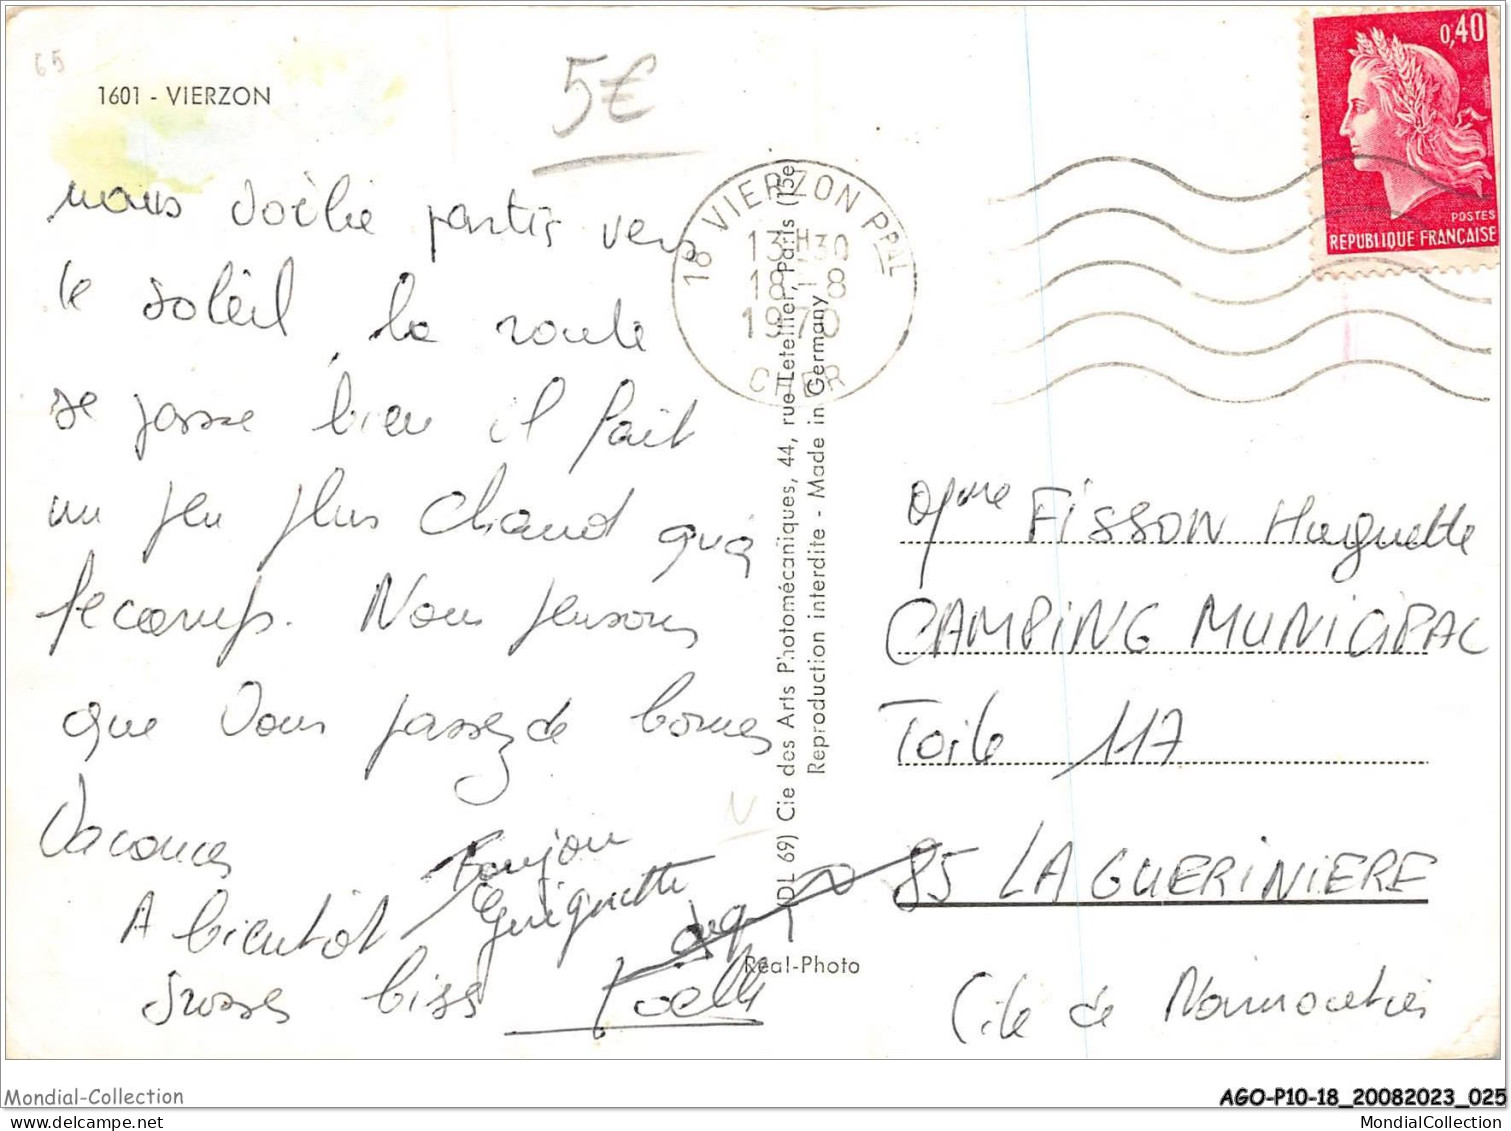 65
1601 - VIERZON
5€
0,40
POSTES
REPUBLIQUE FRANÇAISE
18 VIERZON PPAL
13H30
18 - 8
1970
CHER
nous voilà partis vers
le soleil, la route
se passe bien il fait
un peu plus chaud qu'à
fecamp. Nous pensons
que vous passez de bonnes
Vacances
A bientôt
Grosses bises
Bonjour
Guiguette
Joelle
(DL 69) Cie des Arts Photomécaniques, 44, rue Letellier, Paris (15e
Reproduction interdite - Made in Germany
Réal-Photo
Mme FISSON Huguette
CAMPING MUNICIPAL
Toile 117
85 LA GUERINIERE
(ile de Noirmoutier
Mondial-Collection
AGO-P10-18_20082023_025
mondial-collection.delcampe.net
MondialCollection